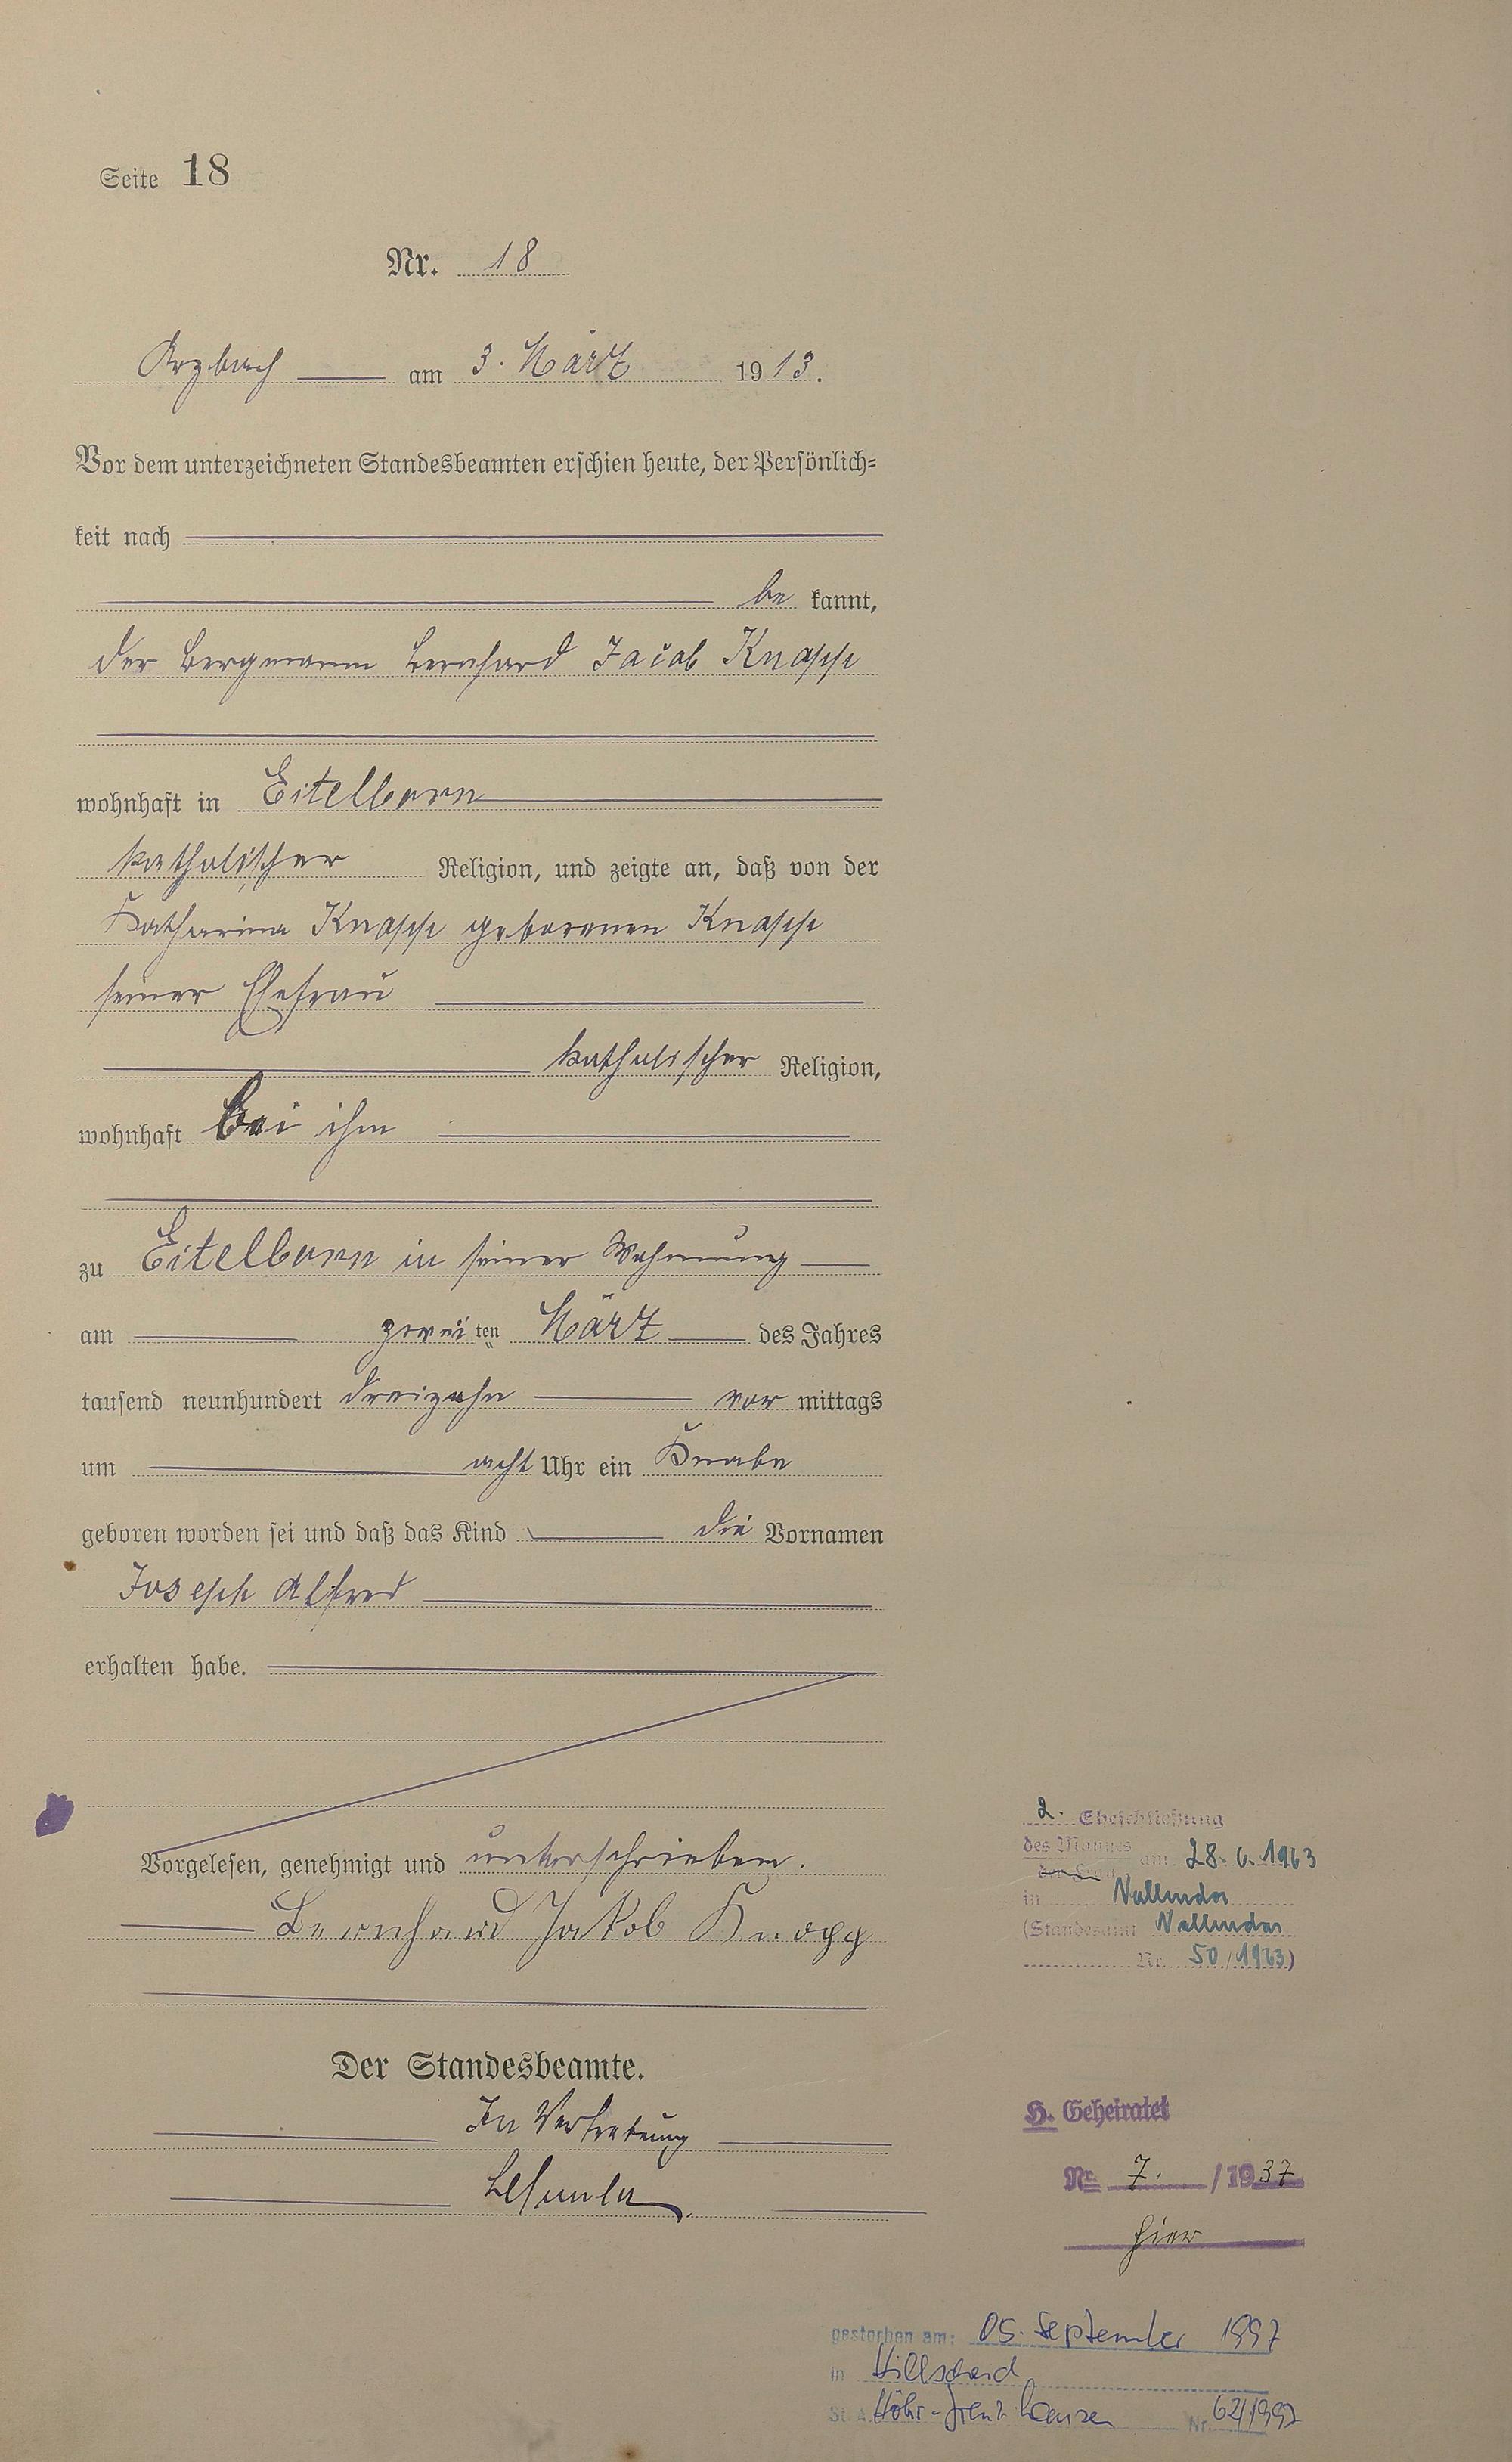 Seite 18
Nr. 18
Arzbach am 3. März 1913.
Vor dem unterzeichneten Standesbeamten erschien heute, der Persönlich-
keit nach
be kannt,
der Bergmann Bernhard Jacob Knapp
wohnhaft in Eitelborn
katholischer Religion, und zeigte an, daß von der
Katharina Knapp geborenen Knapp
seiner Ehefrau
katholischer Religion,
wohnhaft bei ihm
zu Eitelborn in seiner Wohnung
am zwei ten März des Jahres
tausend neunhundert dreizehn vor mittags
um acht Uhr ein Knabe
geboren worden sei und daß das Kind die Vornamen
Joseph Alfred
erhalten habe.
Vorgelesen, genehmigt und unterschrieben.
Bernhard Jakob Knapp
Der Standesbeamte.
In Vertretung
2. Eheschließung
des Mannes
der Frau am 28. 6. 1963
in Vallendar
(Standesamt Vallendar
Nr. 50/1963)
H. Geheiratet
Nr. 7. /1937
hier
gestorben am: 05. September 1997
in Hillscheid
St. A. Höhr-Grenzhausen Nr. 62/1997